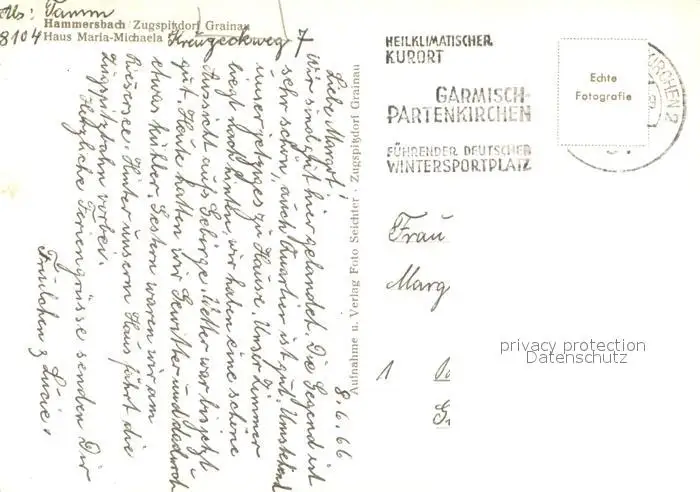 Abs: Tamm
Hammersbach Zugspitzdorf Grainau
8104 Haus Maria-Michaela Kreuzeckweg 7
8.6.66
Liebe Margot!
Wir sind gut hier gelandet. Die Gegend ist
sehr schön, auch Quartier ist gut. Umstehend
unser jetziges zu Hause. Unser Zimmer
liegt nach hinten, wir haben eine schöne
Aussicht aufs Gebirge. Wetter war bis jetzt
gut. Heute hatten wir Gewitter und dadurch
etwas kühler. Gestern waren wir am
Riessersee. Hinter unserm Haus fährt die
Zugspitzbahn vorbei.
Herzliche Feriengrüsse senden Dir
Frulchen & Lucie.
Aufnahme u. Verlag Foto Seichter · Zugspitzdorf Grainau
HEILKLIMATISCHER
KURORT
GARMISCH-
PARTENKIRCHEN
FÜHRENDER DEUTSCHER
WINTERSPORTPLATZ
Echte
Fotografie
KIRCHEN 2
Frau
Marg
1
privacy protection
Datenschutz